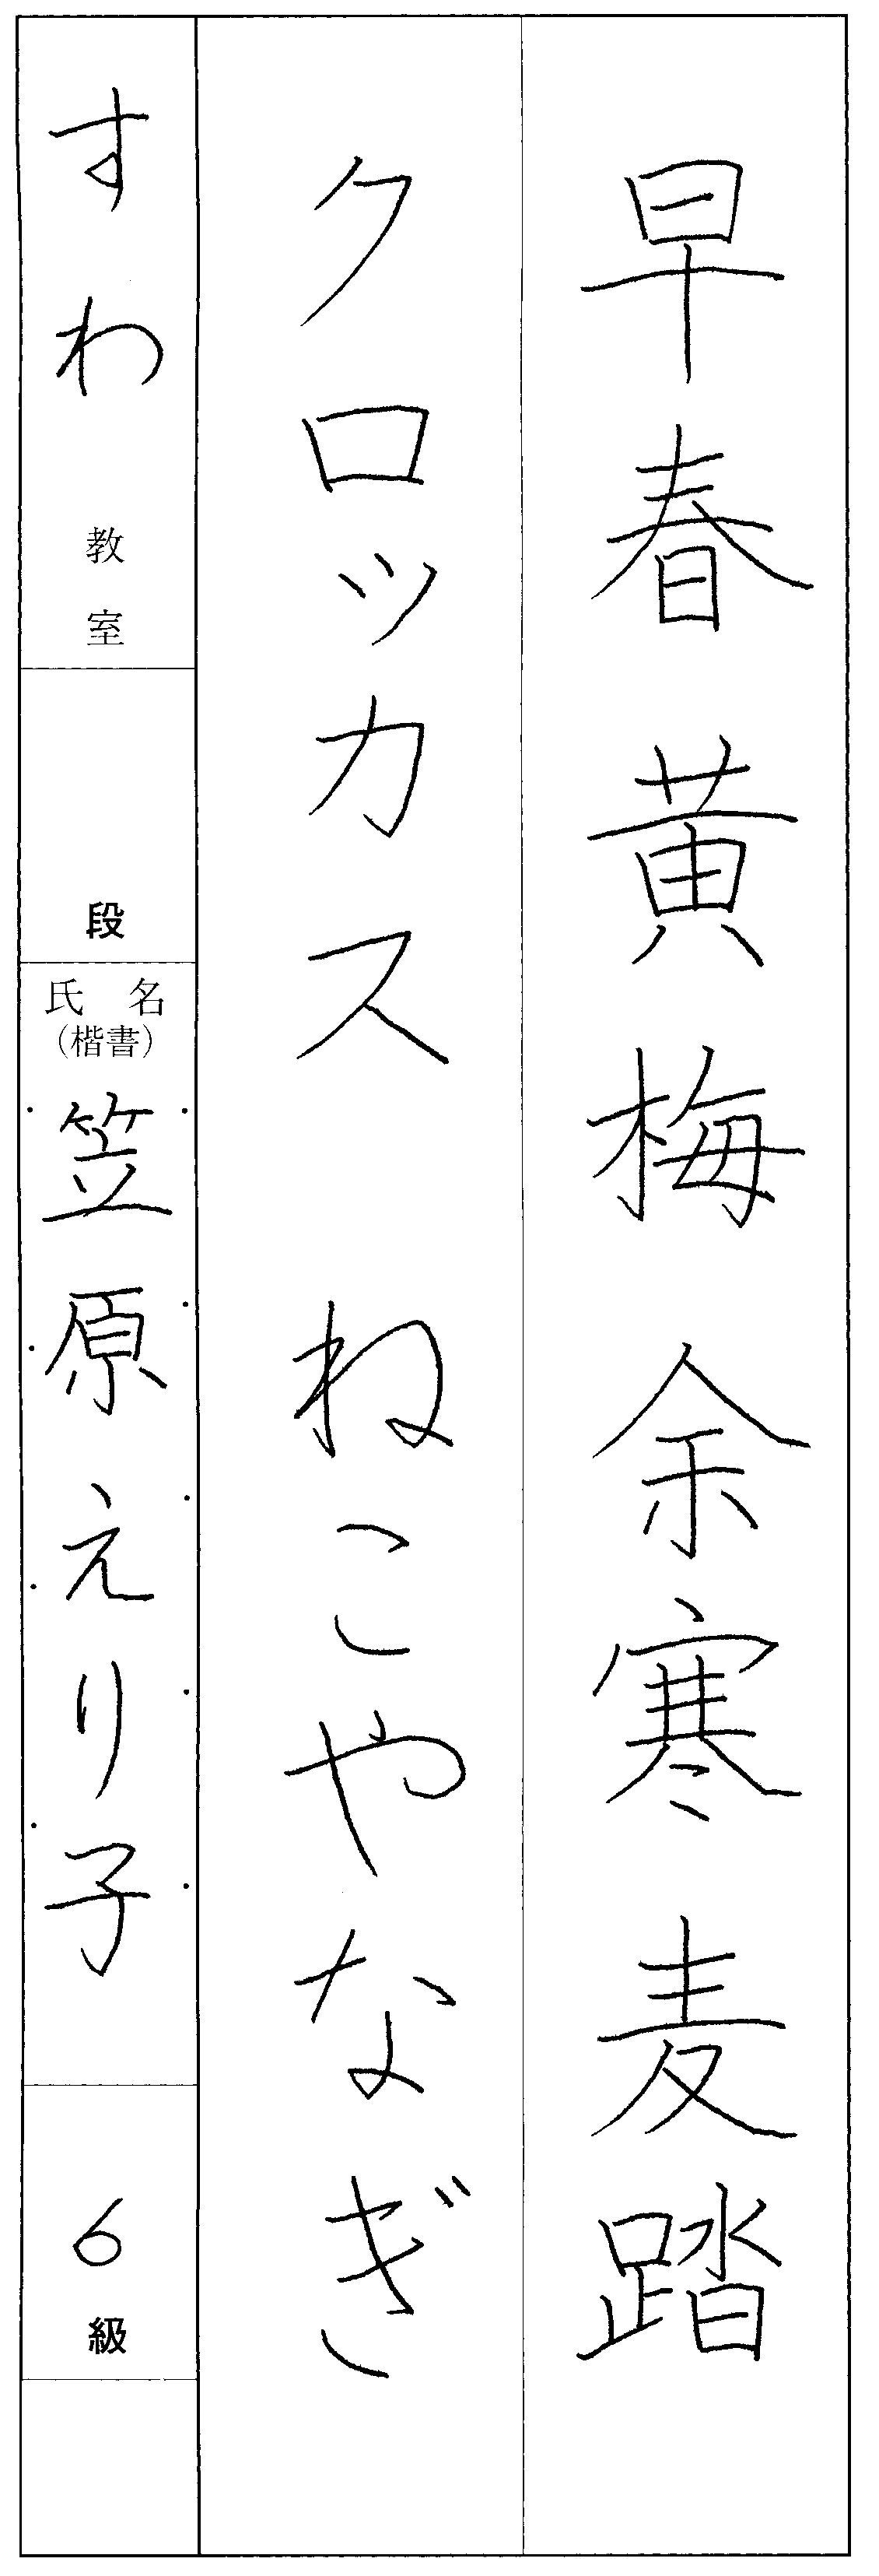 早春黄梅余寒麦踏
クロッカス ねこやなぎ
すわ教室
段
氏名
(楷書)
笠原えり子
6級